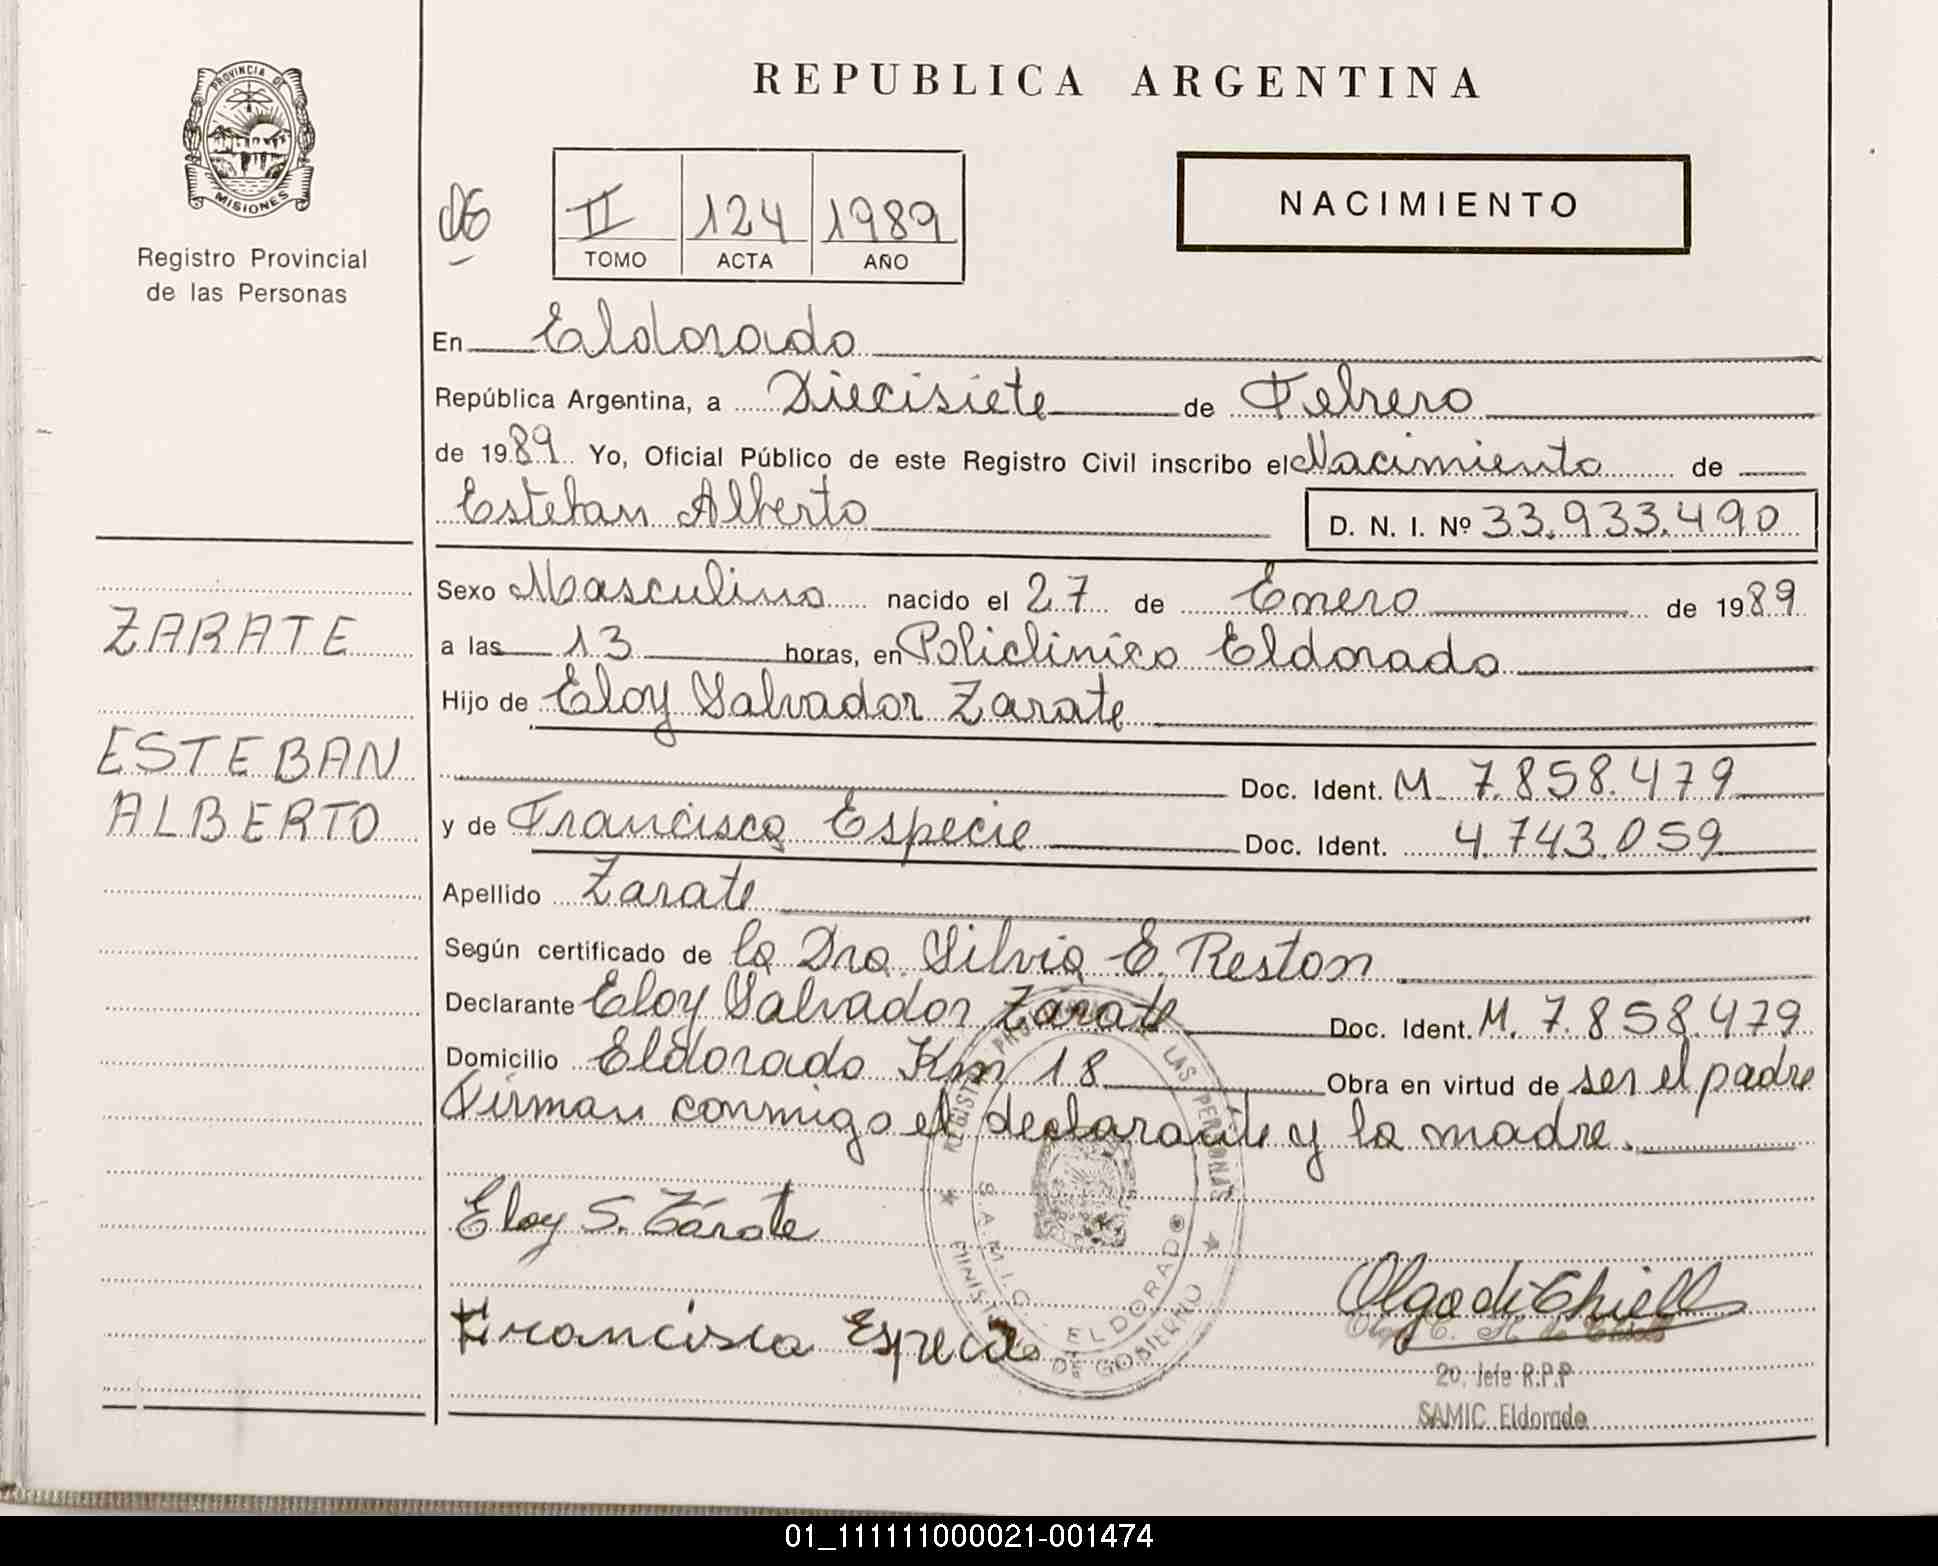 REPUBLICA ARGENTINA
PROVINCIA DE
MISIONES
Registro Provincial
de las Personas
06
II 124 1989
TOMO ACTA AÑO
NACIMIENTO
En Eldorado
República Argentina, a Diecisiete de Febrero
de 1989 Yo, Oficial Público de este Registro Civil inscribo el Nacimiento de
Esteban Alberto D. N. I. Nº 33.933.490
Sexo Masculino nacido el 27 de Enero de 1989
ZARATE
a las 13 horas, en Policlinico Eldorado
Hijo de Eloy Salvador Zarate
ESTEBAN
Doc. Ident. M 7.858.479
ALBERTO
y de Francisca Especie Doc. Ident. 4.743.059
Apellido Zarate
Según certificado de la Dra. Silvia E. Reston
Declarante Eloy Salvador Zarate Doc. Ident. M. 7.858.479
Domicilio Eldorado Km 18 Obra en virtud de ser el padre
Firman conmigo el declarante y la madre.
Eloy S. Zárate
Francisca Especie
REGISTRO PROVINCIAL DE LAS PERSONAS
S.A.M.I.C. ELDORADO
MINISTERIO DE GOBIERNO
Olga di Chiell
2o. Jefe R.P.P
SAMIC Eldorado
01_111111000021-001474